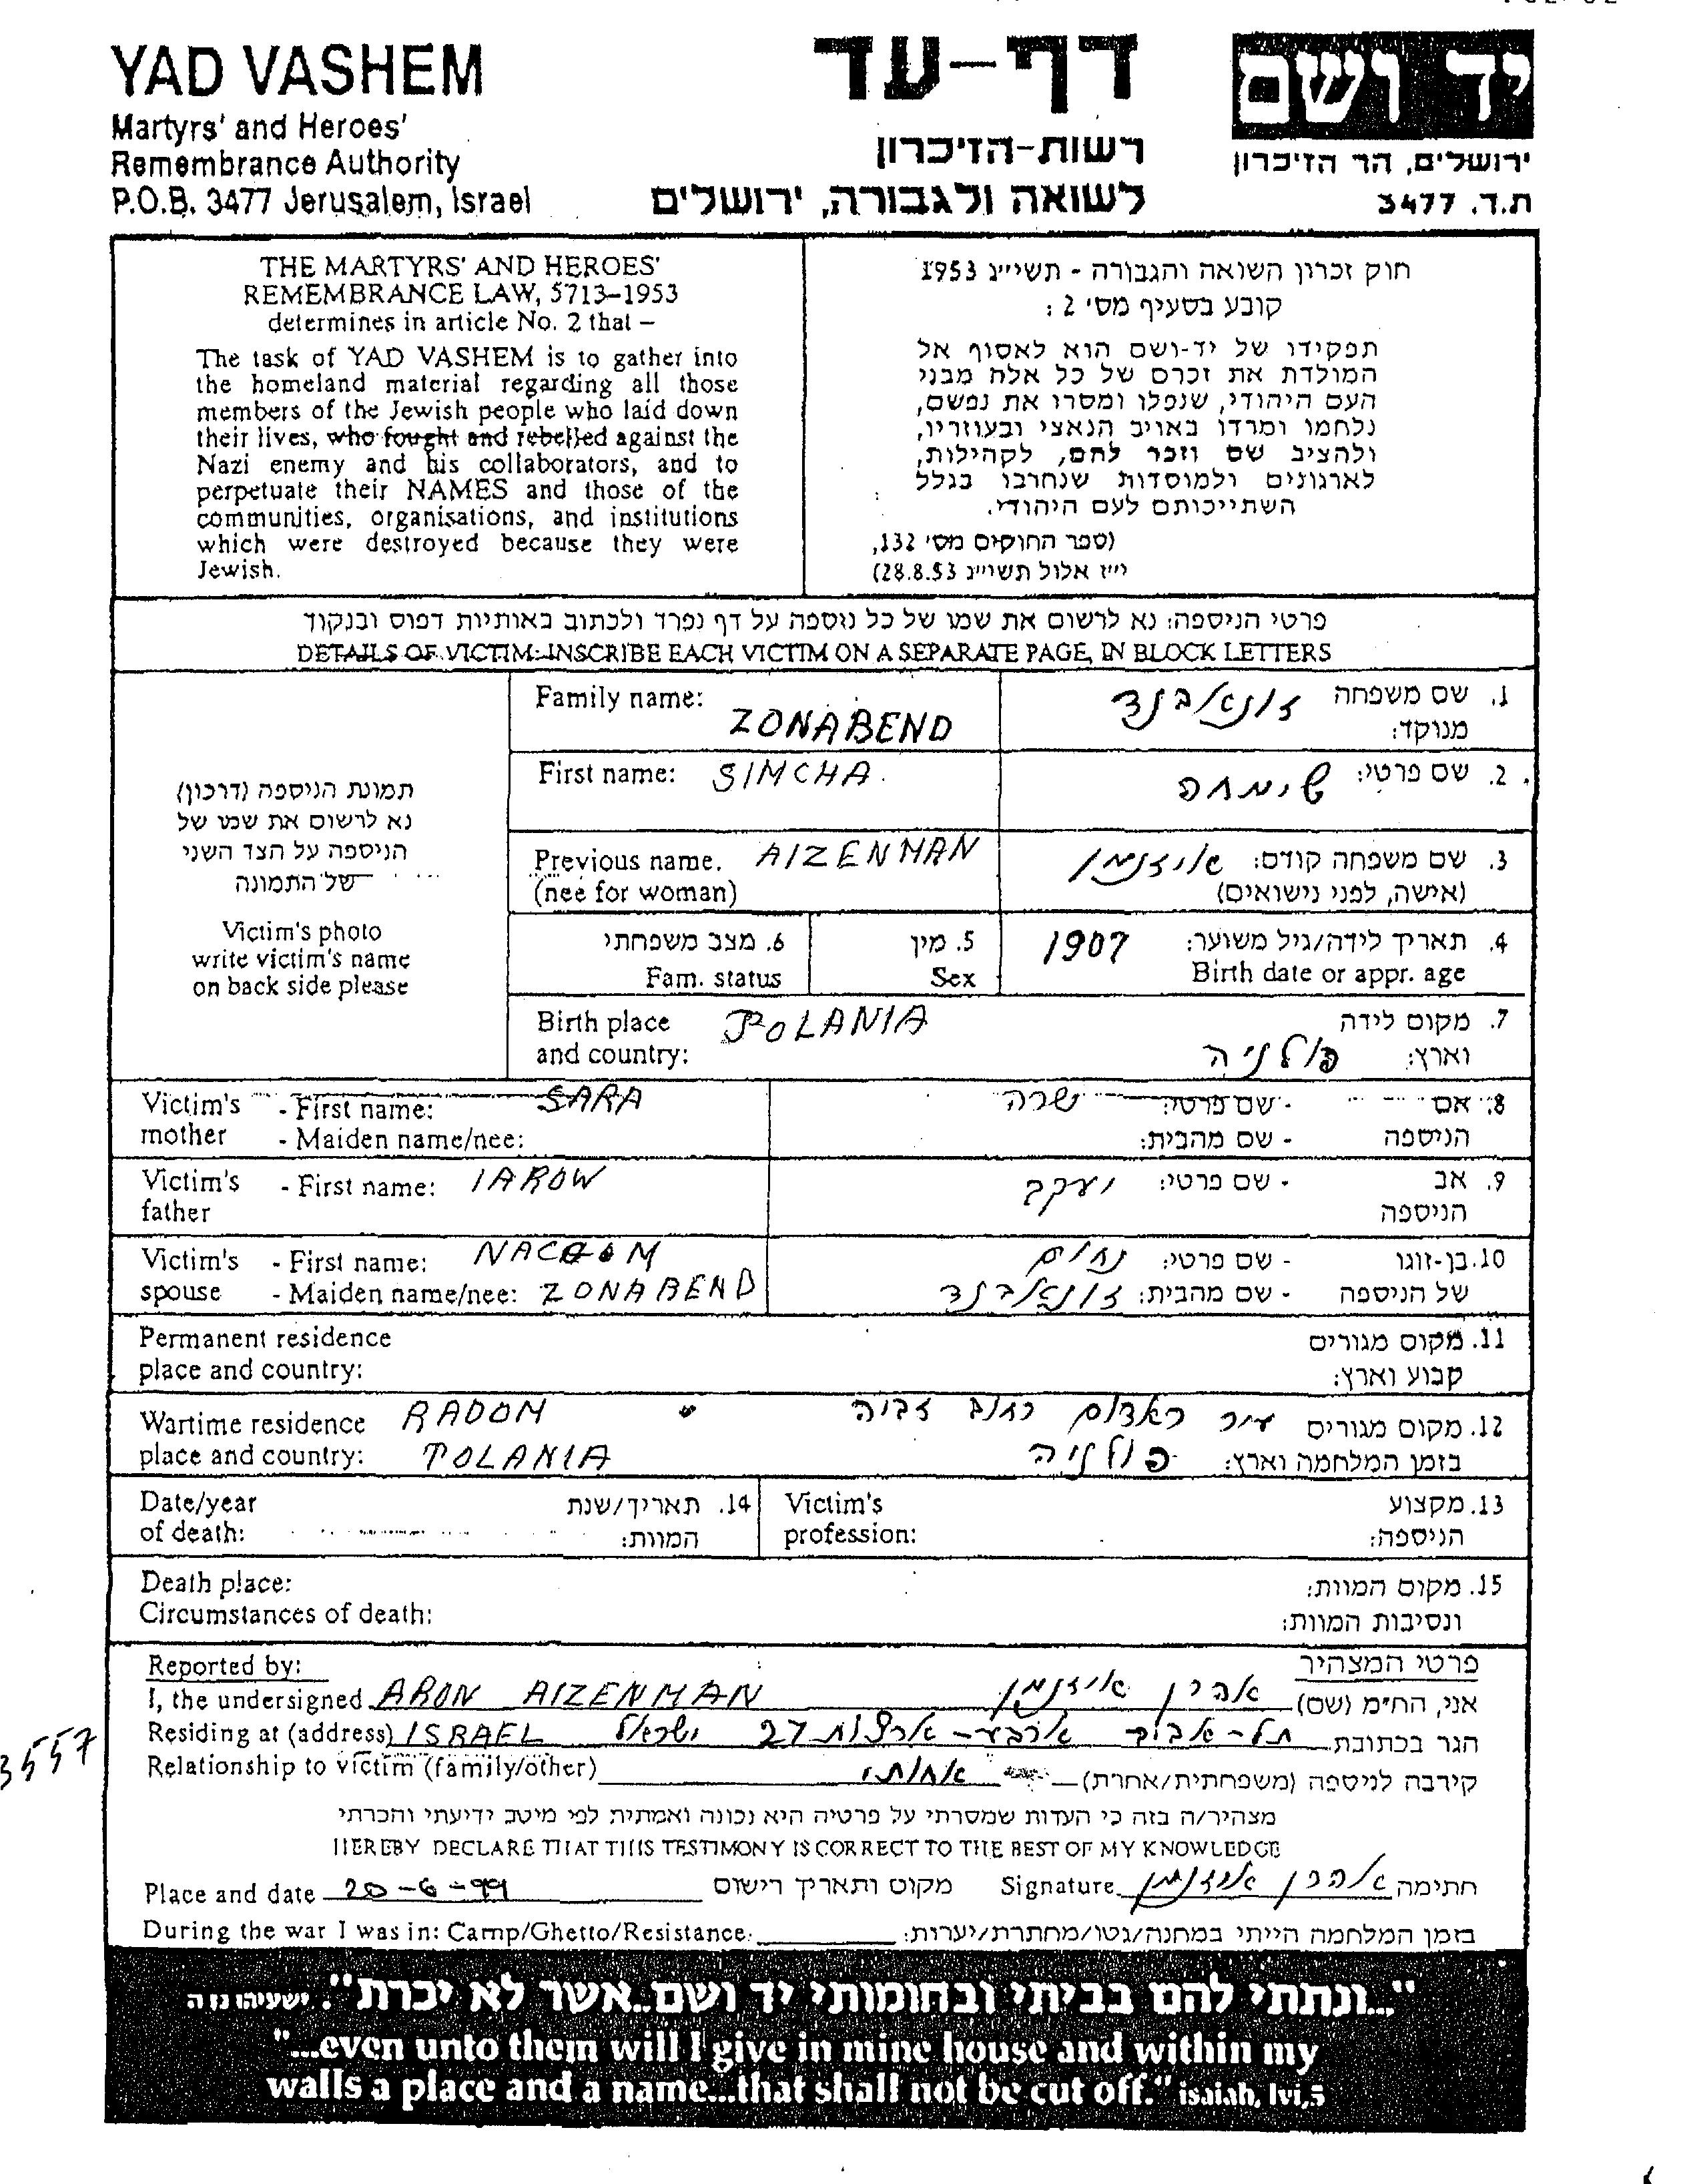 YAD VASHEM
Martyrs' and Heroes'
Remembrance Authority
P.O.B. 3477 Jerusalem, Israel
דף-עד
רשות-הזיכרון
לשואה ולגבורה, ירושלים
יד ושם
ירושלים, הר הזיכרון
ת.ד. 3477
THE MARTYRS' AND HEROES'
REMEMBRANCE LAW, 5713–1953
determines in article No. 2 that –
The task of YAD VASHEM is to gather into
the homeland material regarding all those
members of the Jewish people who laid down
their lives, who fought and rebelled against the
Nazi enemy and his collaborators, and to
perpetuate their NAMES and those of the
communities, organisations, and institutions
which were destroyed because they were
Jewish.
חוק זכרון השואה והגבורה - תשי״ג 1953
קובע בסעיף מס׳ 2 :
תפקידו של יד-ושם הוא לאסוף אל
המולדת את זכרם של כל אלה מבני
העם היהודי, שנפלו ומסרו את נפשם,
נלחמו ומרדו באויב הנאצי ובעוזריו,
ולהציב שם וזכר להם, לקהילות,
לארגונים ולמוסדות שנחרבו בגלל
השתייכותם לעם היהודי.
(ספר החוקים מס׳ 132,
י״ז אלול תשי״ג 28.8.53)
פרטי הניספה: נא לרשום את שמו של כל נוספה על דף נפרד ולכתוב באותיות דפוס ובנקוד
DETAILS OF VICTIM: INSCRIBE EACH VICTIM ON A SEPARATE PAGE, IN BLOCK LETTERS
תמונת הניספה (דרכון)
נא לרשום את שמו של
הניספה על הצד השני
של התמונה
Victim's photo
write victim's name
on back side please
Family name: ZONABEND
1. שם משפחה זונאבנד
מנוקד:
First name: SIMCHA.
2. שם פרטי: שימחה
Previous name. AIZENMAN
(nee for woman)
3. שם משפחה קודם: אייזנמן
(אישה, לפני נישואים)
6. מצב משפחתי
Fam. status
5. מין
Sex
4. תאריך לידה/גיל משוער: 1907
Birth date or appr. age
Birth place POLANIA
and country:
7. מקום לידה
וארץ: פולניה
Victim's - First name: SARA
mother - Maiden name/nee:
8. אם - שם פרטי: שרה
הניספה - שם מהבית:
Victim's - First name: IAROW
father
9. אב - שם פרטי: יעקב
הניספה
Victim's - First name: NACOOM
spouse - Maiden name/nee: ZONABEND
10. בן-זוגו - שם פרטי: נחום
של הניספה - שם מהבית: זונאבנד
Permanent residence
place and country:
11. מקום מגורים
קבוע וארץ:
Wartime residence RADOM
place and country: POLANIA
12. מקום מגורים עיר ראדום רחוב
בזמן המלחמה וארץ: פולניה
Date/year
of death:
14. תאריך/שנת
המוות:
Victim's
profession:
13. מקצוע
הניספה:
Death place:
Circumstances of death:
15. מקום המוות:
ונסיבות המוות:
Reported by:
פרטי המצהיר
I, the undersigned ARON AIZENMAN
אני, החי״מ (שם) אהרן אייזנמן
Residing at (address) ISRAEL
הגר בכתובת תל-אביב ארבע-ארצות 27 ישראל
Relationship to victim (family/other)
קירבה לניספה (משפחתית/אחרת) אחותי
מצהיר/ה בזה כי העדות שמסרתי על פרטיה היא נכונה ואמתית לפי מיטב ידיעתי והכרתי
HEREBY DECLARE THAT THIS TESTIMONY IS CORRECT TO THE BEST OF MY KNOWLEDGE
Place and date 20-6-99 מקום ותאריך רישום
Signature אהרן אייזנמן חתימה
During the war I was in: Camp/Ghetto/Resistance:
בזמן המלחמה הייתי במחנה/גטו/מחתרת/יערות:
3557
"...ונתתי להם בביתי ובחומותי יד ושם..אשר לא יכרת". ישעיהו נו ה
"...even unto them will I give in mine house and within my
walls a place and a name...that shall not be cut off." isaiah, lvi,5